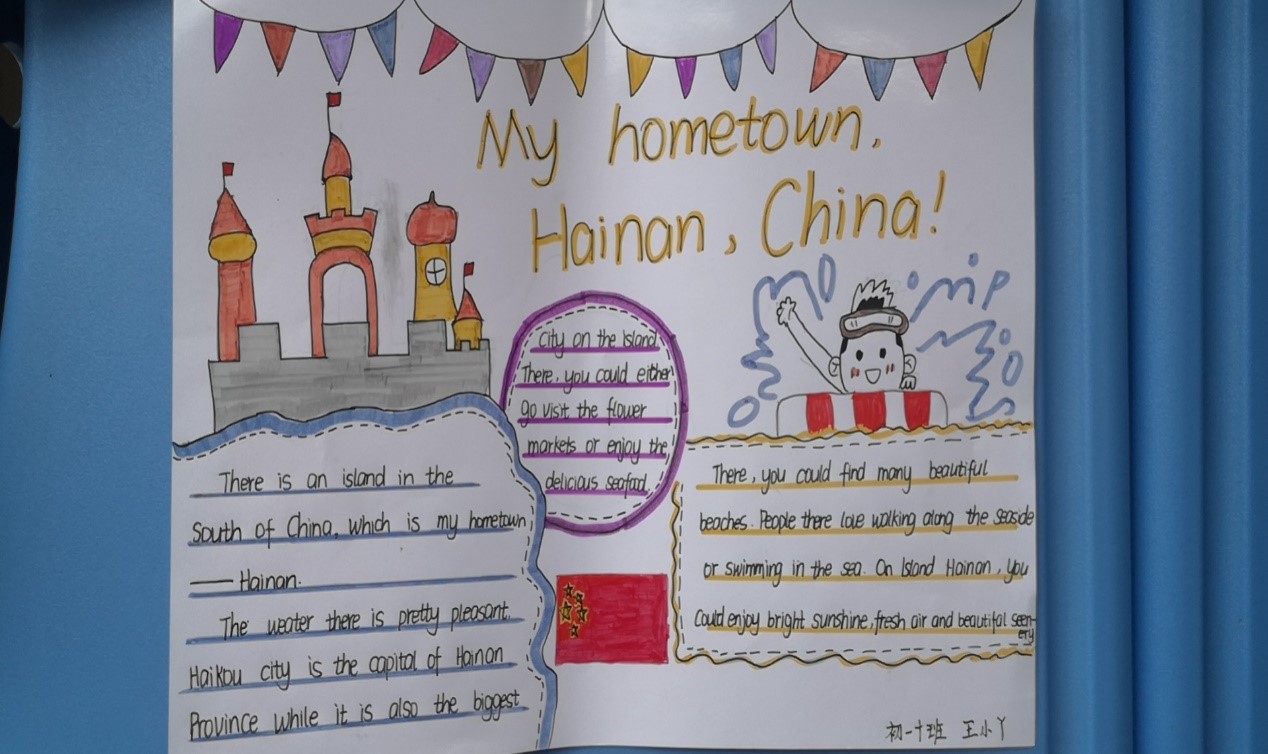 My hometown,
Hainan, China!
There is an island in the
South of China, which is my hometown
—Hainan.
The weater there is pretty pleasant.
Haikou city is the capital of Hainan
Province while it is also the biggest
city on the island
There, you could either
go visit the flower
markets or enjoy the
delicious seafood.
There, you could find many beautiful
beaches. People there love walking along the seaside
or swimming in the sea. On Island Hainan, you
Could enjoy bright sunshine, fresh air and beautiful seen-
ery
初一十班 王小丫